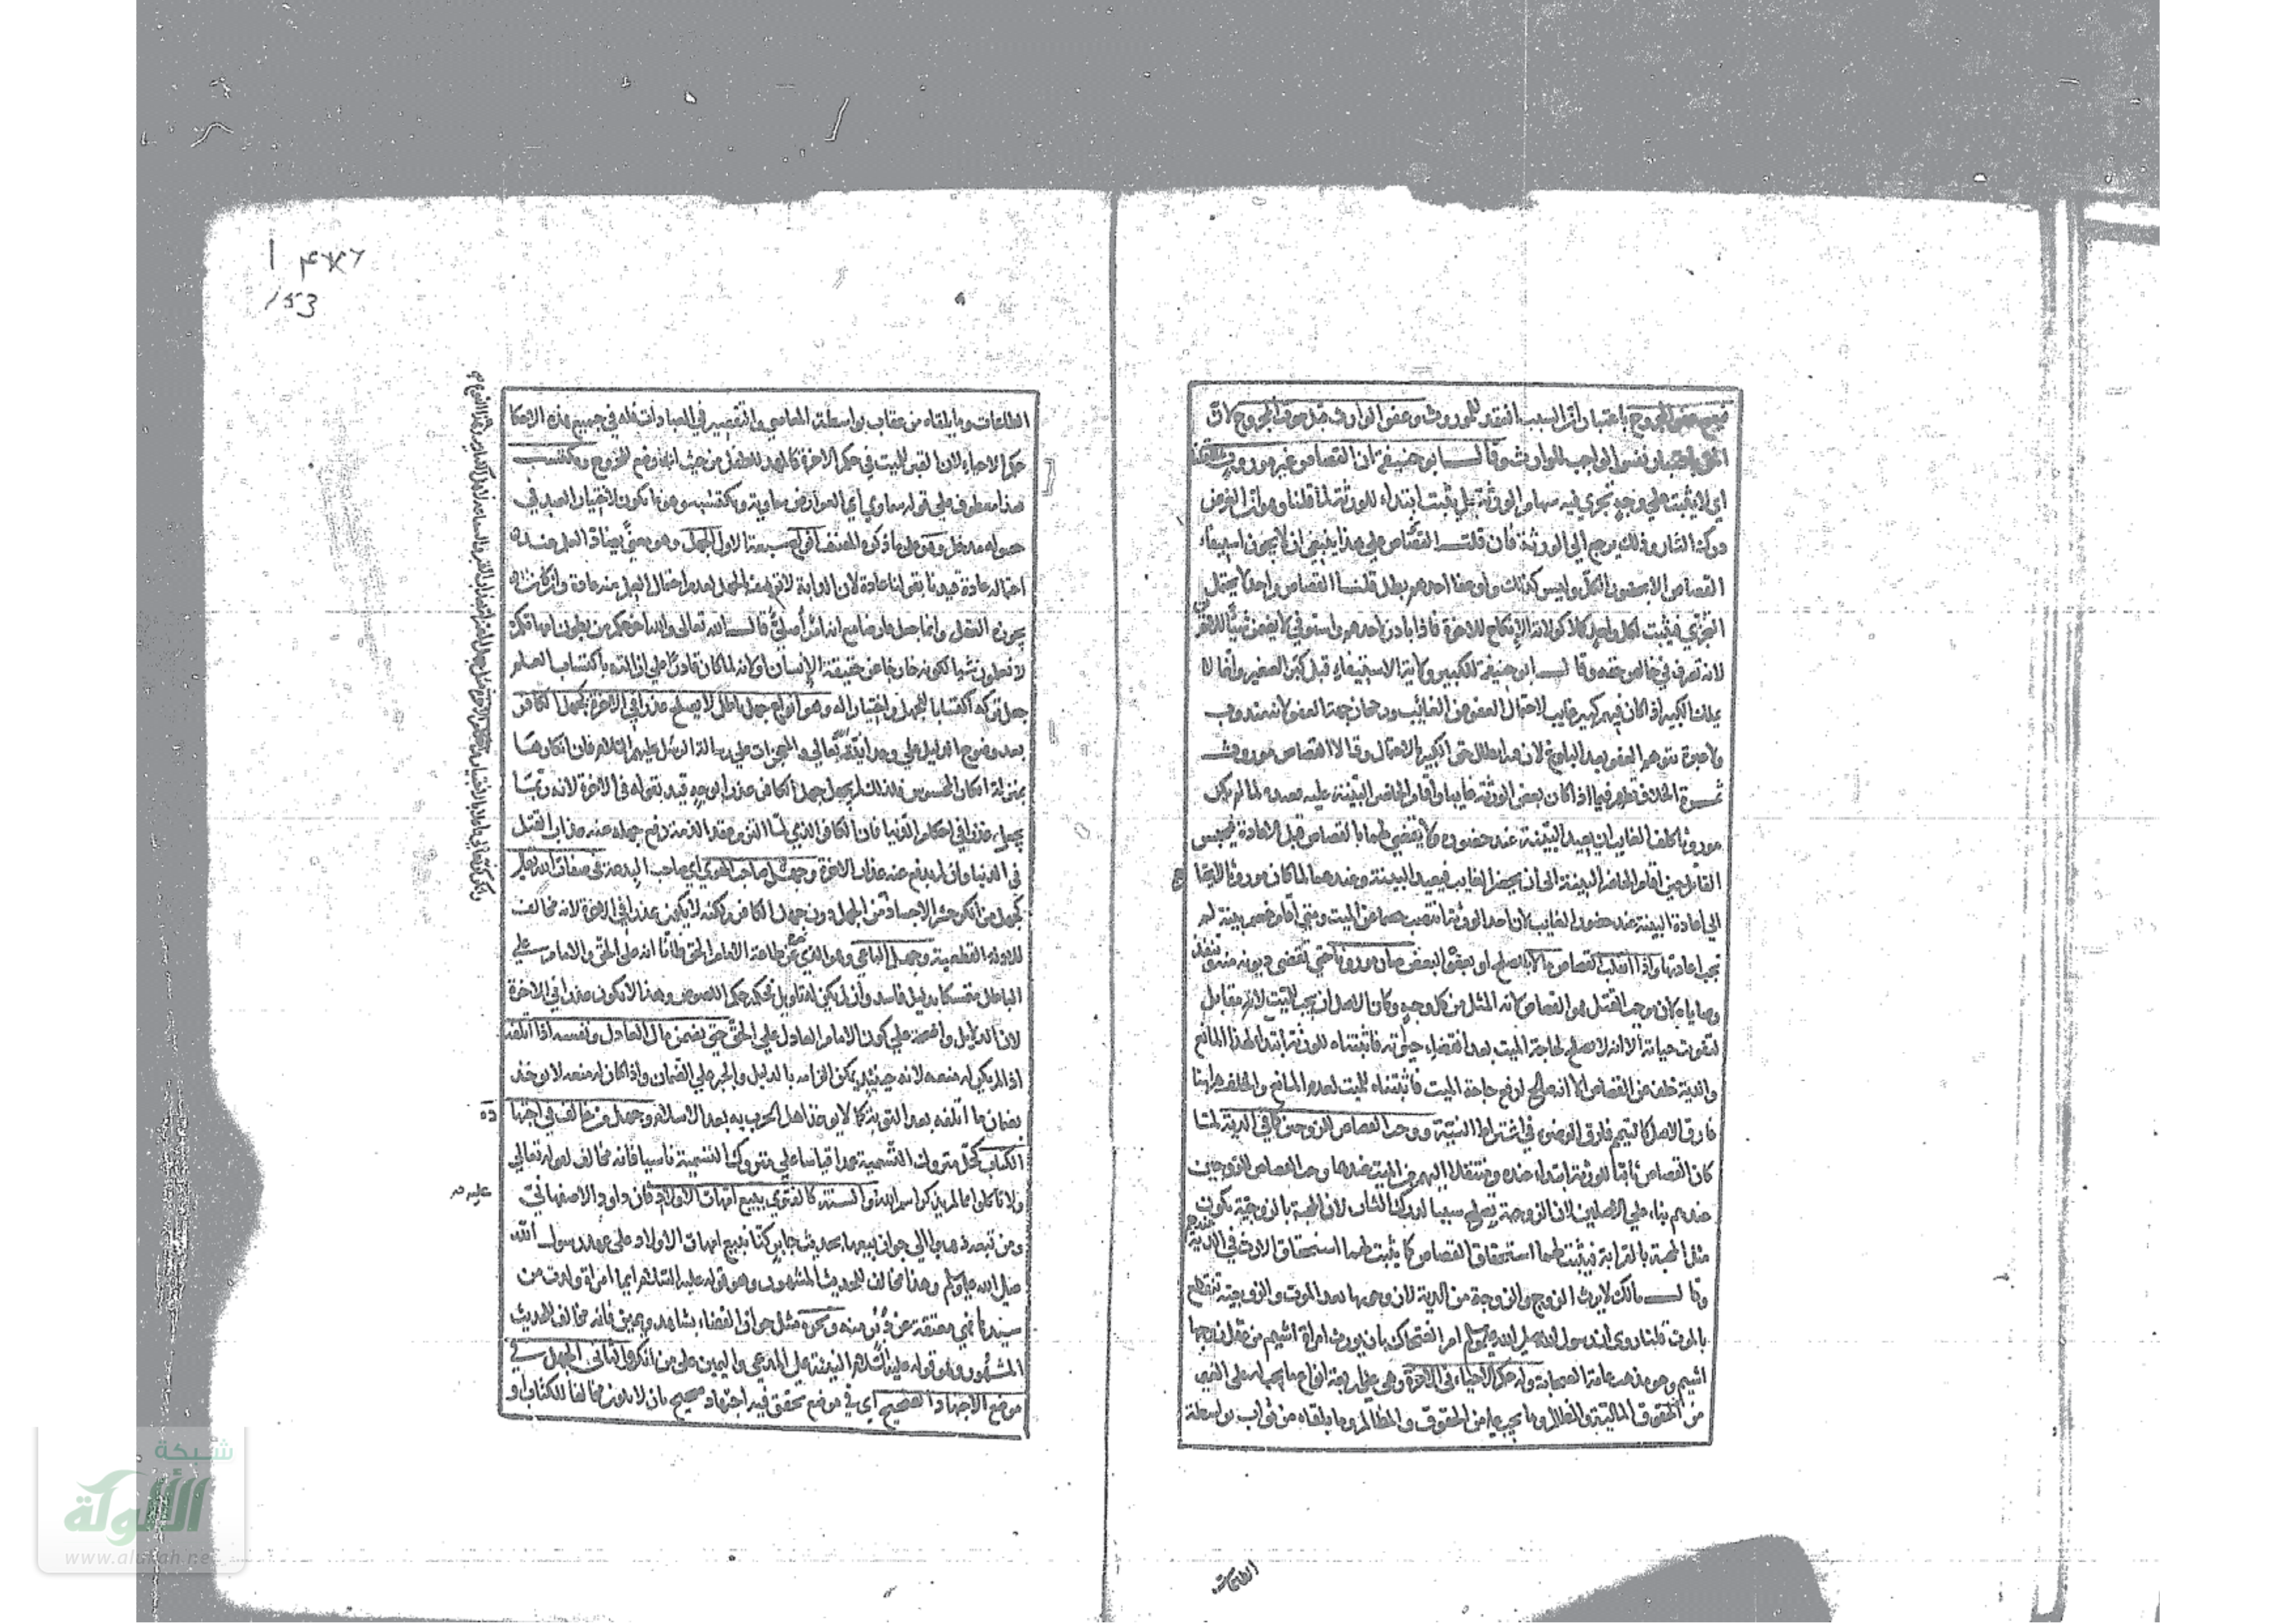 فيصح عفو المجروح باعتبار ان السبب انعقد للموروث وعفو الوارث قبل موت المجروح لان
الحق باعتبار نفس الواجب للوارث وقال ابو حنيفة ان القصاص غير موروث
اي لا يثبت على وجه تجري فيه سهام الورثة بل يثبت ابتداء للورثة لما قلنا وهو ان الغرض
درك الثار وذلك يرجع الى الورثة فان قلت القصاص على هذا ينبغي ان لا يجوز استيفاء
القصاص الا بحضور الكل وليس كذلك ولو عفا احدهم بطل قلنا القصاص واحد لا يحتمل
التجزي فيثبت لكل واحد كملا كولاية الانكاح للاخوة فاذا بادر احدهم واستوفى لا يضمن شيئا للاخرين
لانه تصرف في خالص حقه وقال ابو حنيفة للكبير ولاية الاستيفاء قبل كبر الصغير وانما لا
يملك الكبير اذا كان فيهم كبير غايب لاحتمال العفو من الغائب ورجحان جهة العفو لانه مندوب
ولا عبرة بتوهم العفو بعد البلوغ لان فيه ابطال حق الكبير بالاحتمال وقالا القصاص موروث
ثمرة الخلاف تظهر فيما اذا كان بعض الورثة غايبا واقام الحاضر البينة عليه فعنده لما لم يكن
موروثا كلف الغايب ان يعيد البينة عند حضوره ولا يقضى لهما بالقصاص قبل الاعادة فيحبس
القاتل حين اقام الحاضر البينة الى ان يحضر الغايب فيعيد البينة وعندهما لما كان موروثا لا يحتاج
الى اعادة البينة عند حضور الغايب لان احد الورثة انتصب خصما عن الميت ومتى اقام خصم بينة لم
تجب اعادتها واذا انقلب القصاص مالا بالصلح او بعفو البعض صار موروثا حتى تقضى ديونه منه وتنفذ
وصاياه لان موجب القتل هو القصاص لانه المثل من كل وجه وكان الاصل ان يجب للميت لانه مقابل
لتفويت حياته الا انه لا يصلح لحاجة الميت بعد انقضاء حيوته فاثبتناه للورثة ابتداء لهذا المانع
والدية خلف من القصاص الا انه صالح لدفع حاجة الميت فاثبتناه للميت لعدم المانع والخلف ههنا
فارق الاصل كالتيمم فارق الوضوء في اشتراط النية ووجب القصاص للزوجين كما في الدية لما
كان القصاص ثابتا للورثة ابتداء عنده ومنتقلا اليهم من الميت عندهما وجب القصاص للزوجين
عندهم بناء على الاصلين لان الزوجية تصلح سببا لدرك الثار لان المحبة بالزوجية تكون
مثل المحبة بالقرابة فيثبت لهما استحقاق القصاص كما يثبت لهما استحقاق الارث في الدية عندهم
وقال مالك لا يرث الزوج والزوجة من الدية لان وجوبها بعد الموت والزوجية تنقطع
بالموت قلنا روى ان رسول الله صلى الله عليه وسلم امر الضحاك بان يورث امراة اشيم من عقل زوجها
اشيم وهو مذهب عامة الصحابة وله حكم الاحياء في الاخرة وهي على اربعة انواع ما يجب له على الغير
من الحقوق المالية والمظالم وما يجب عليه من الحقوق والمظالم وما يلقاه من ثواب بواسطة
الطاعات
ا ۴۷۶
153
الطاعات وما يلقاه من عقاب بواسطة المعاصي والتقصير في العبادات فله في جميع هذه الاحكا
حكم الاحياء لان القبر للميت في حكم الاخرة كالمهد للطفل من حيث انه وضع للخروج ومكتسب
هذا معطوف على قوله سماوي اي العوارض سماوية ومكتسبة وهو ما يكون لاختيار العبد في
حصوله مدخل وهو على ما ذكره المصنف سبعة الاول الجهل وهو معنى يضاد العلم عند
احتماله عادة قيدنا بقولنا عادة لان الدابة لا توصف بالجهل لعدم احتمال العلم منه عادة وان كان
يجوزه العقل وانما جعل عارضا مع انه امر اصلي قال الله تعالى والله اخرجكم من بطون امهاتكم
لا تعلمون شيئا لكونه خارجا عن حقيقة الانسان او لانه لما كان قادرا على ازالته باكتساب العلم
جعل تركه اكتسابا للجهل واختيارا له وهو انواع جهل باطل لا يصلح عذرا في الاخرة كجهل الكافر
بعد وضوح الدليل على وحدانيته تعالى والمعجزات على رسالة الرسل عليهم السلام فان انكارهما
بمنزلة انكار المحسوس فلذلك لم يجعل جهل الكافر عذرا بوجه قيد بقوله في الاخرة لانه ربما
يجعل عذرا في احكام الدنيا فان الكافر الذمي لما التزم عقد الذمة دفع جهله عنه عذاب القتل
في الدنيا وان لم يدفع عنه عذاب الاخرة وجهل صاحب الهوى اي صاحب البدعة في صفات الله تعالى
كجهل من انكر حشر الاجساد من الجهل دون جهل الكافر ولكنه لا يكون عذرا في الاخرة لانه مخالف
للادلة القطعية وجهل الباغي وهو الذي خرج عن طاعة الامام الحق ظانا انه على الحق والامام على
الباطل متمسكا بدليل فاسد وان لم يكن له تاويل فحكمه حكم اللصوص وهذا لا يكون عذرا في الاخرة
لان الدلايل واضحة على كون الامام العادل على الحق حتى يضمن مال العادل ونفسه اذا اتلفه
اذا لم يكن له منعة لانه حينئذ يمكن الزامه بالدليل والجبر على الضمان واذا كان له منعة لا يوخذ
بضمان ما اتلفه بعد التوبة كما لا يوخذ اهل الحرب به بعد الاسلام وجهل من خالف في اجتهاده
الكتاب كحل متروك التسمية عمدا قياسا على متروك التسمية ناسيا فانه مخالف لقوله تعالى
ولا تاكلوا مما لم يذكر اسم الله عليه والسنة كالفتوى ببيع امهات الاولاد فان داود الاصفهاني
ومن تبعه ذهبوا الى جواز بيعها بحديث جابر كنا نبيع امهات الاولاد على عهد رسول الله
صلى الله عليه وسلم وهذا مخالف للحديث المشهور وهو قوله عليه السلام ايما امراة ولدت من
سيدها فهي معتقة عن دبر منه ونحوه مثل جواز القضاء بشاهد ويمين فانه مخالف للحديث
المشهور وهو قوله عليه السلام البينة على المدعي واليمين على من انكر والثاني الجهل في
موضع الاجتهاد الصحيح اي في موضع تحقق فيه اجتهاد صحيح بان لا يكون مخالفا للكتاب او
شبكة
الألوكة
www.alukah.net